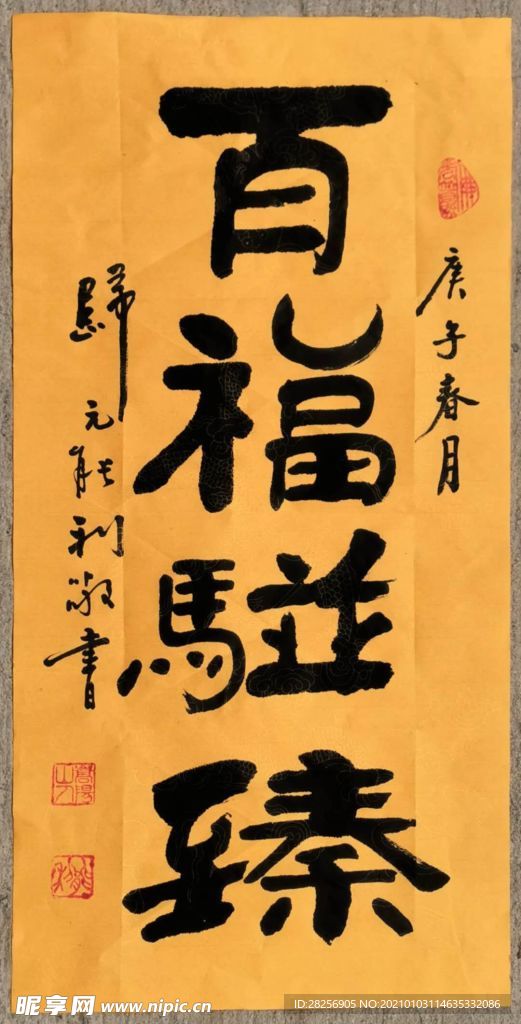 庚子春月
百福駢臻
歸元能利敬書
昵享网 www.nipic.cn
ID:28256905 NO:20210103114635332086